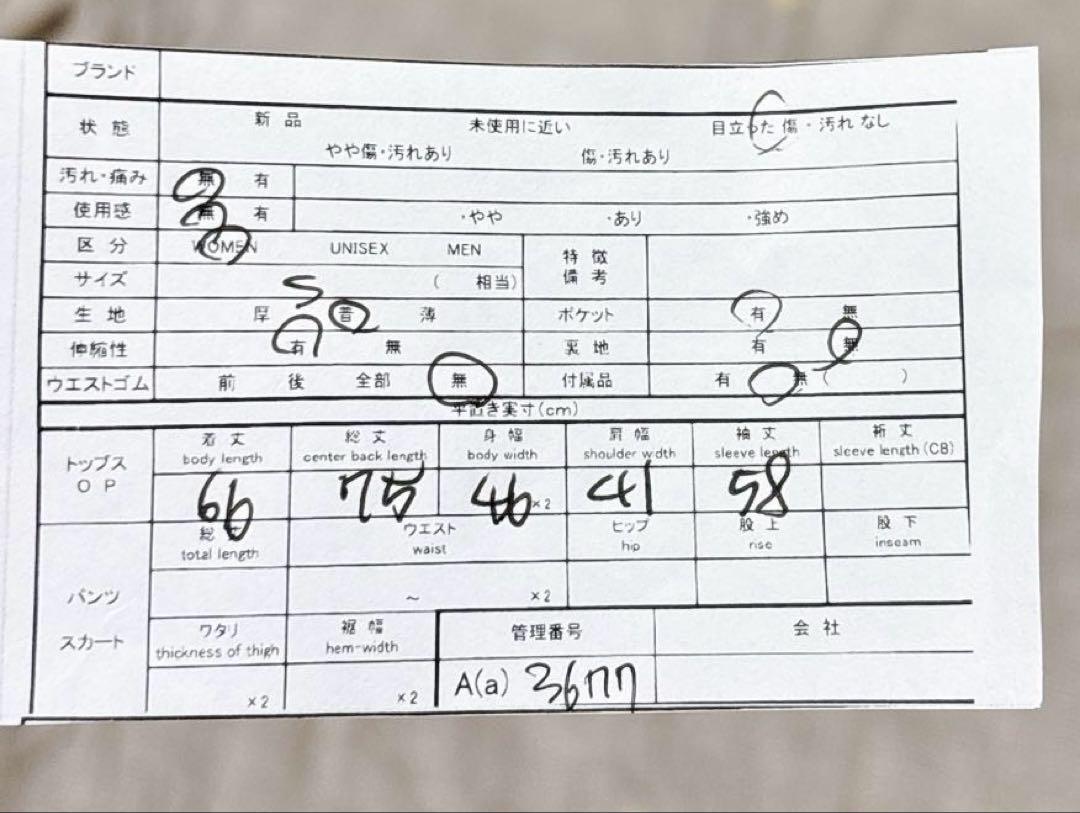 ブランド
状態 新品 未使用に近い 目立った傷・汚れなし
やや傷・汚れあり 傷・汚れあり
汚れ・痛み 無 有
使用感 無 有 ・やや ・あり ・強め
区分 WOMEN UNISEX MEN 特徴
備考
サイズ S ( 相当)
生地 厚 普 薄 ポケット 有 無
伸縮性 有 無 裏地 有 無
ウエストゴム 前 後 全部 無 付属品 有 無 ( )
平置き実寸(cm)
トップス
OP
着丈 総丈 身幅 肩幅 袖丈 裄丈
body length center back length body width shoulder wdth sleeve length sleeve length(CB)
66 75 46 ×2 41 58
総丈 ウエスト ヒップ 股上 股下
total length waist hip rise inseam
パンツ ~ ×2
スカート
ワタリ 裾幅 管理番号 会社
thickness of thigh hem-width
×2 ×2 A(a) 3677